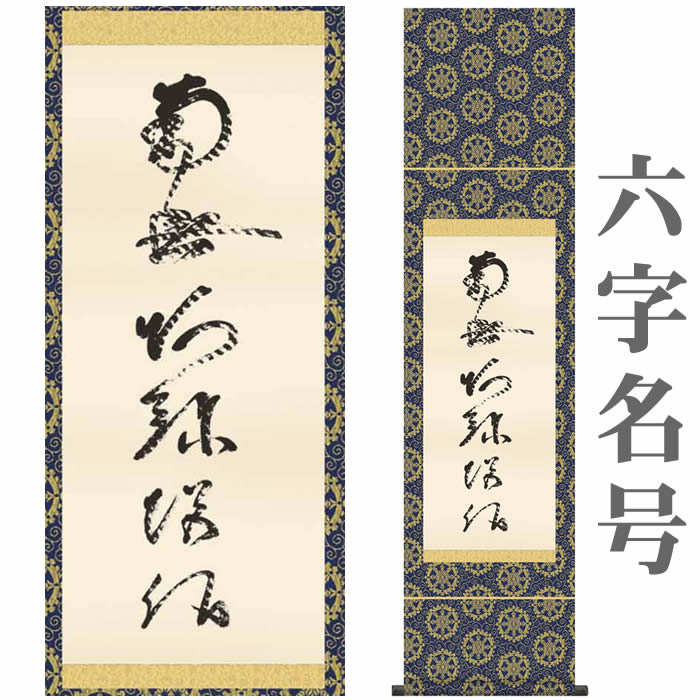 南無阿弥陀仏
南無阿弥陀仏
六字名号